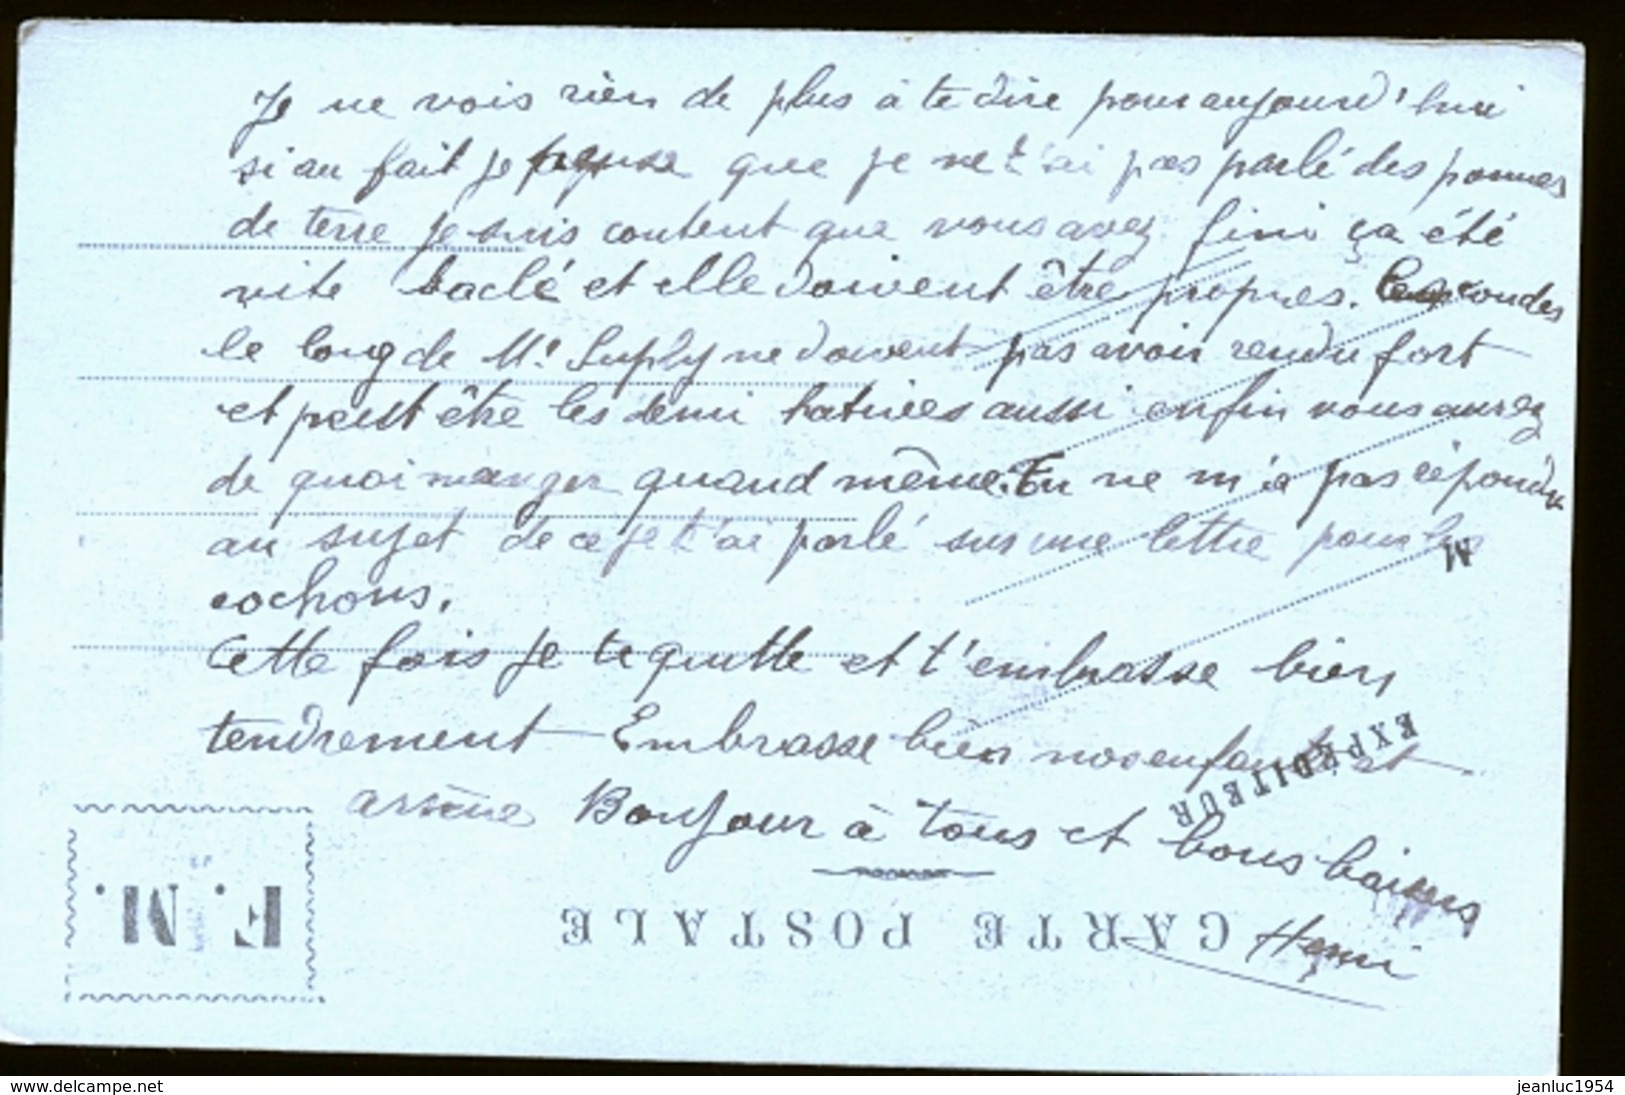 Je ne vois rien de plus à te dire pour aujourd'hui
si au fait je pense que je ne t'ai pas parlé des pommes
de terre je suis content que vous avez fini ça été
vite baclé et elle doivent être propres. Les rondes
le long de Mr ne doivent pas avoir rendu fort
et peut être les demi hatives aussi enfin vous aurez
de quoi manger quand même. Tu ne m'a pas répondu
au sujet de ce je t'ai parlé sur une lettre pour les
cochons.
Cette fois je te quitte et t'embrasse bien
tendrement Embrasse bien nos enfants et
arsène Bonjour à tous et bons baisers
Henri
M
EXPÉDITEUR
CARTE POSTALE
F. M.
www.delcampe.net
jeanluc1954